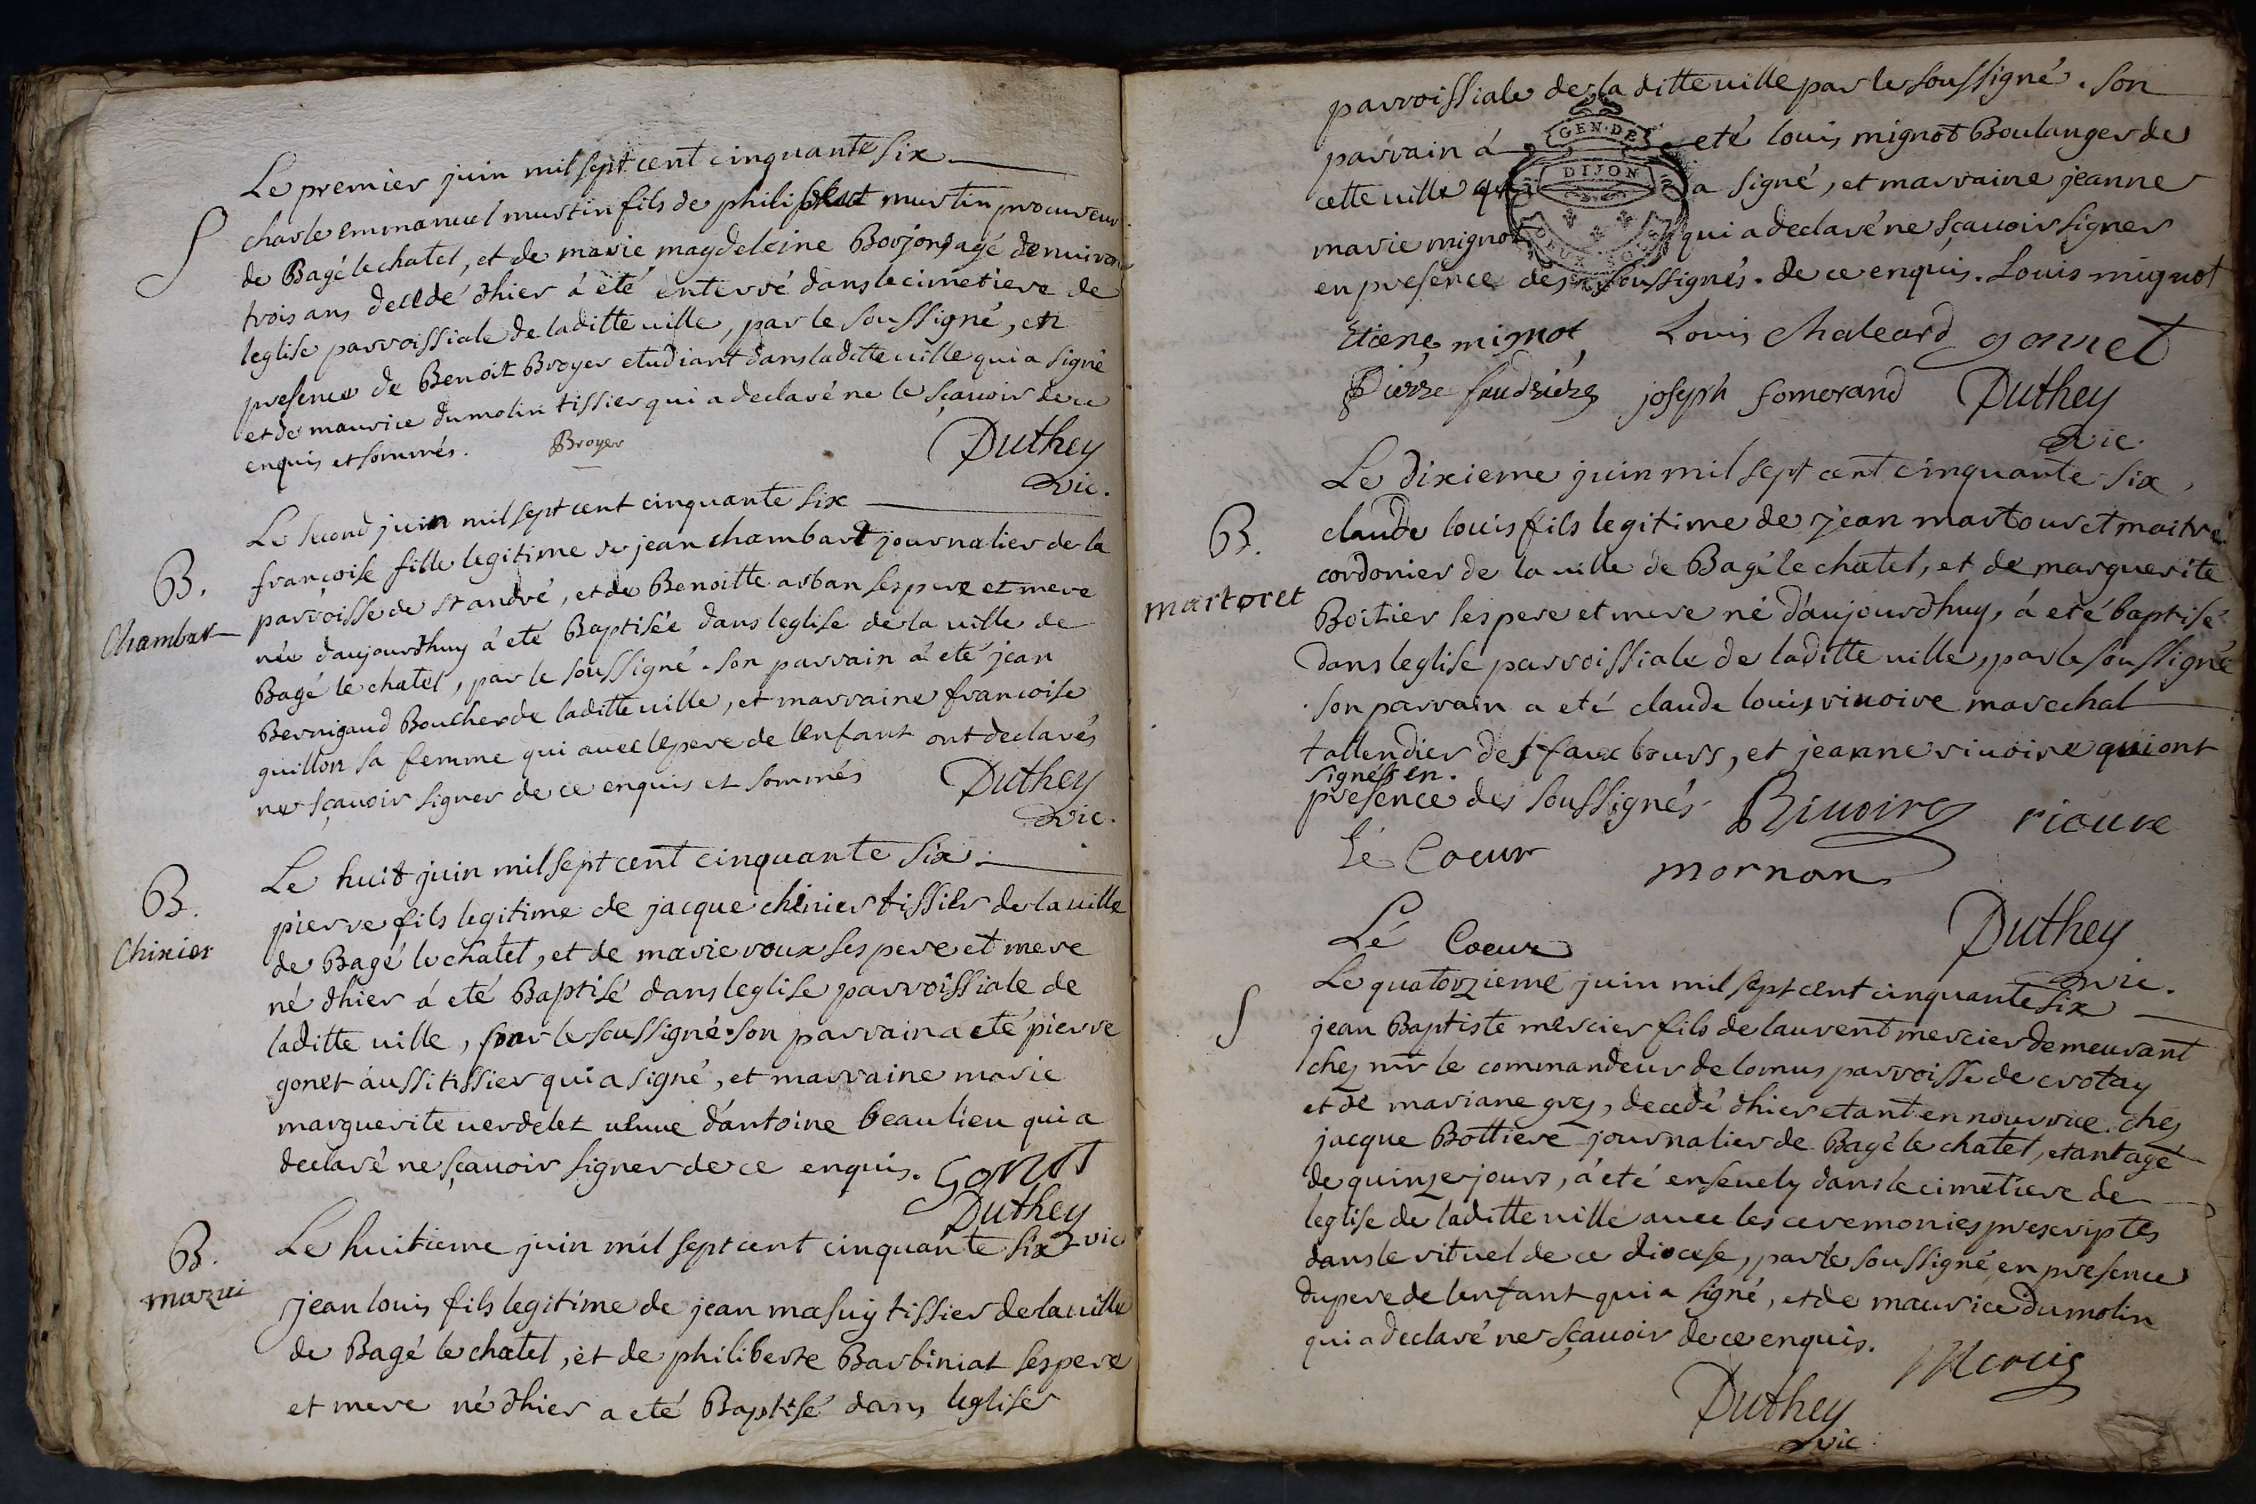 Le premier juin mil sept cent cinquante six
S
charle emmanuel mustin fils de philibert mustin procureur
de Bagé le chatel, et de marie magdeleine Borjon, agé denviron
trois ans decedé dhier á été enterré dans le cimetiere de
leglise parroissiale de laditte ville, par le soussigné, en
presence de Benoit Broyer etudiant dans laditte ville qui a signé
et de maurice dumolin tissier qui a declaré ne le sçavoir de ce
enquis et sommés. Broyer
Duthey
vic.
Le second juin mil sept cent cinquante six
B.
Chambar
françoise fille legitime de jean chambart journalier de la
parroisse de st andré, et de Benoitte arban ses pere et mere
née daujourdhuy á eté Baptisée dans leglise de la ville de
Bagé le chatel, par le soussigné. son parrain á eté jean
Bernigaud Boucher de laditte ville, et marraine françoise
guillon sa femme qui avec le pere de lenfant ont declarés
ne sçavoir signer de ce enquis et sommés
Duthey
vic.
Le huit juin mil sept cent cinquante six.
B.
Chinier
pierre fils legitime de jacque chinier tissier de la ville
de Bagé le chatel, et de marie roux ses pere et mere
né dhier á eté Baptisé dans leglise parroissiale de
laditte ville, par le soussigné. son parrain a eté pierre
gonet aussi tissier qui a signé, et marraine marie
marguerite verdelet veuve dantoine beaulieu qui a
declaré ne sçavoir signer de ce enquis. Gonet
Duthey
vic
Le huitieme juin mil sept cent cinquante six
B.
mazui
jean louis fils legitime de jean masuy tissier de la ville
de Bagé le chatel, et de philiberte Barbiniat ses pere
et mere né dhier a eté Baptisé dans leglise
parroissiale de la ditte ville par le soussigné. son
parrain á eté louis mignot Boulanger de
cette ville qui a signé, et marraine jeanne
marie mignot qui a declaré ne sçavoir signer
GEN. DE
DIJON
DEUX SOLS
en presence des soussignés. de ce enquis. Louis mignot
Etiene mignot Louis Chaleard gonnet
Pierre faudriere joseph fomerand Duthey
vic.
Le dixieme juin mil sept cent cinquante six
B.
martoret
claude louis fils legitime de jean martouret maitre
cordonier de la ville de Bagé le chatel, et de marguerite
Boitier ses pere et mere né d'aujourdhuy, á eté baptisé
dans leglise parroissiale de laditte ville, par le soussigné
son parrain a eté claude louis rivoire marechal
tallendier des faux bours, et jeanne rivoire qui ont
signés en.
presence des soussignés. Rivoire rioure
Lé Coeur mornan
Lé Coeur
Duthey
vic.
Le quatorzieme juin mil sept cent cinquante six
S
jean Baptiste mercier fils de laurent mercier demeurant
chez mr le commandeur de lomus parroisse de crotay
et de mariane grez, decedé dhier etant en nourrice chez
jacque Bottiere journalier de Bagé le chatel, etant agé
de quinze jours, á eté ensevely dans le cimetiere de
leglise de laditte ville avec les ceremonies prescriptes
dans le rituel de ce diocese, par le soussigné en presence
du pere de lenfant qui a signé, et de maurice dumolin
qui a declaré ne sçavoir de ce enquis.
Mercie
Duthey
vic.